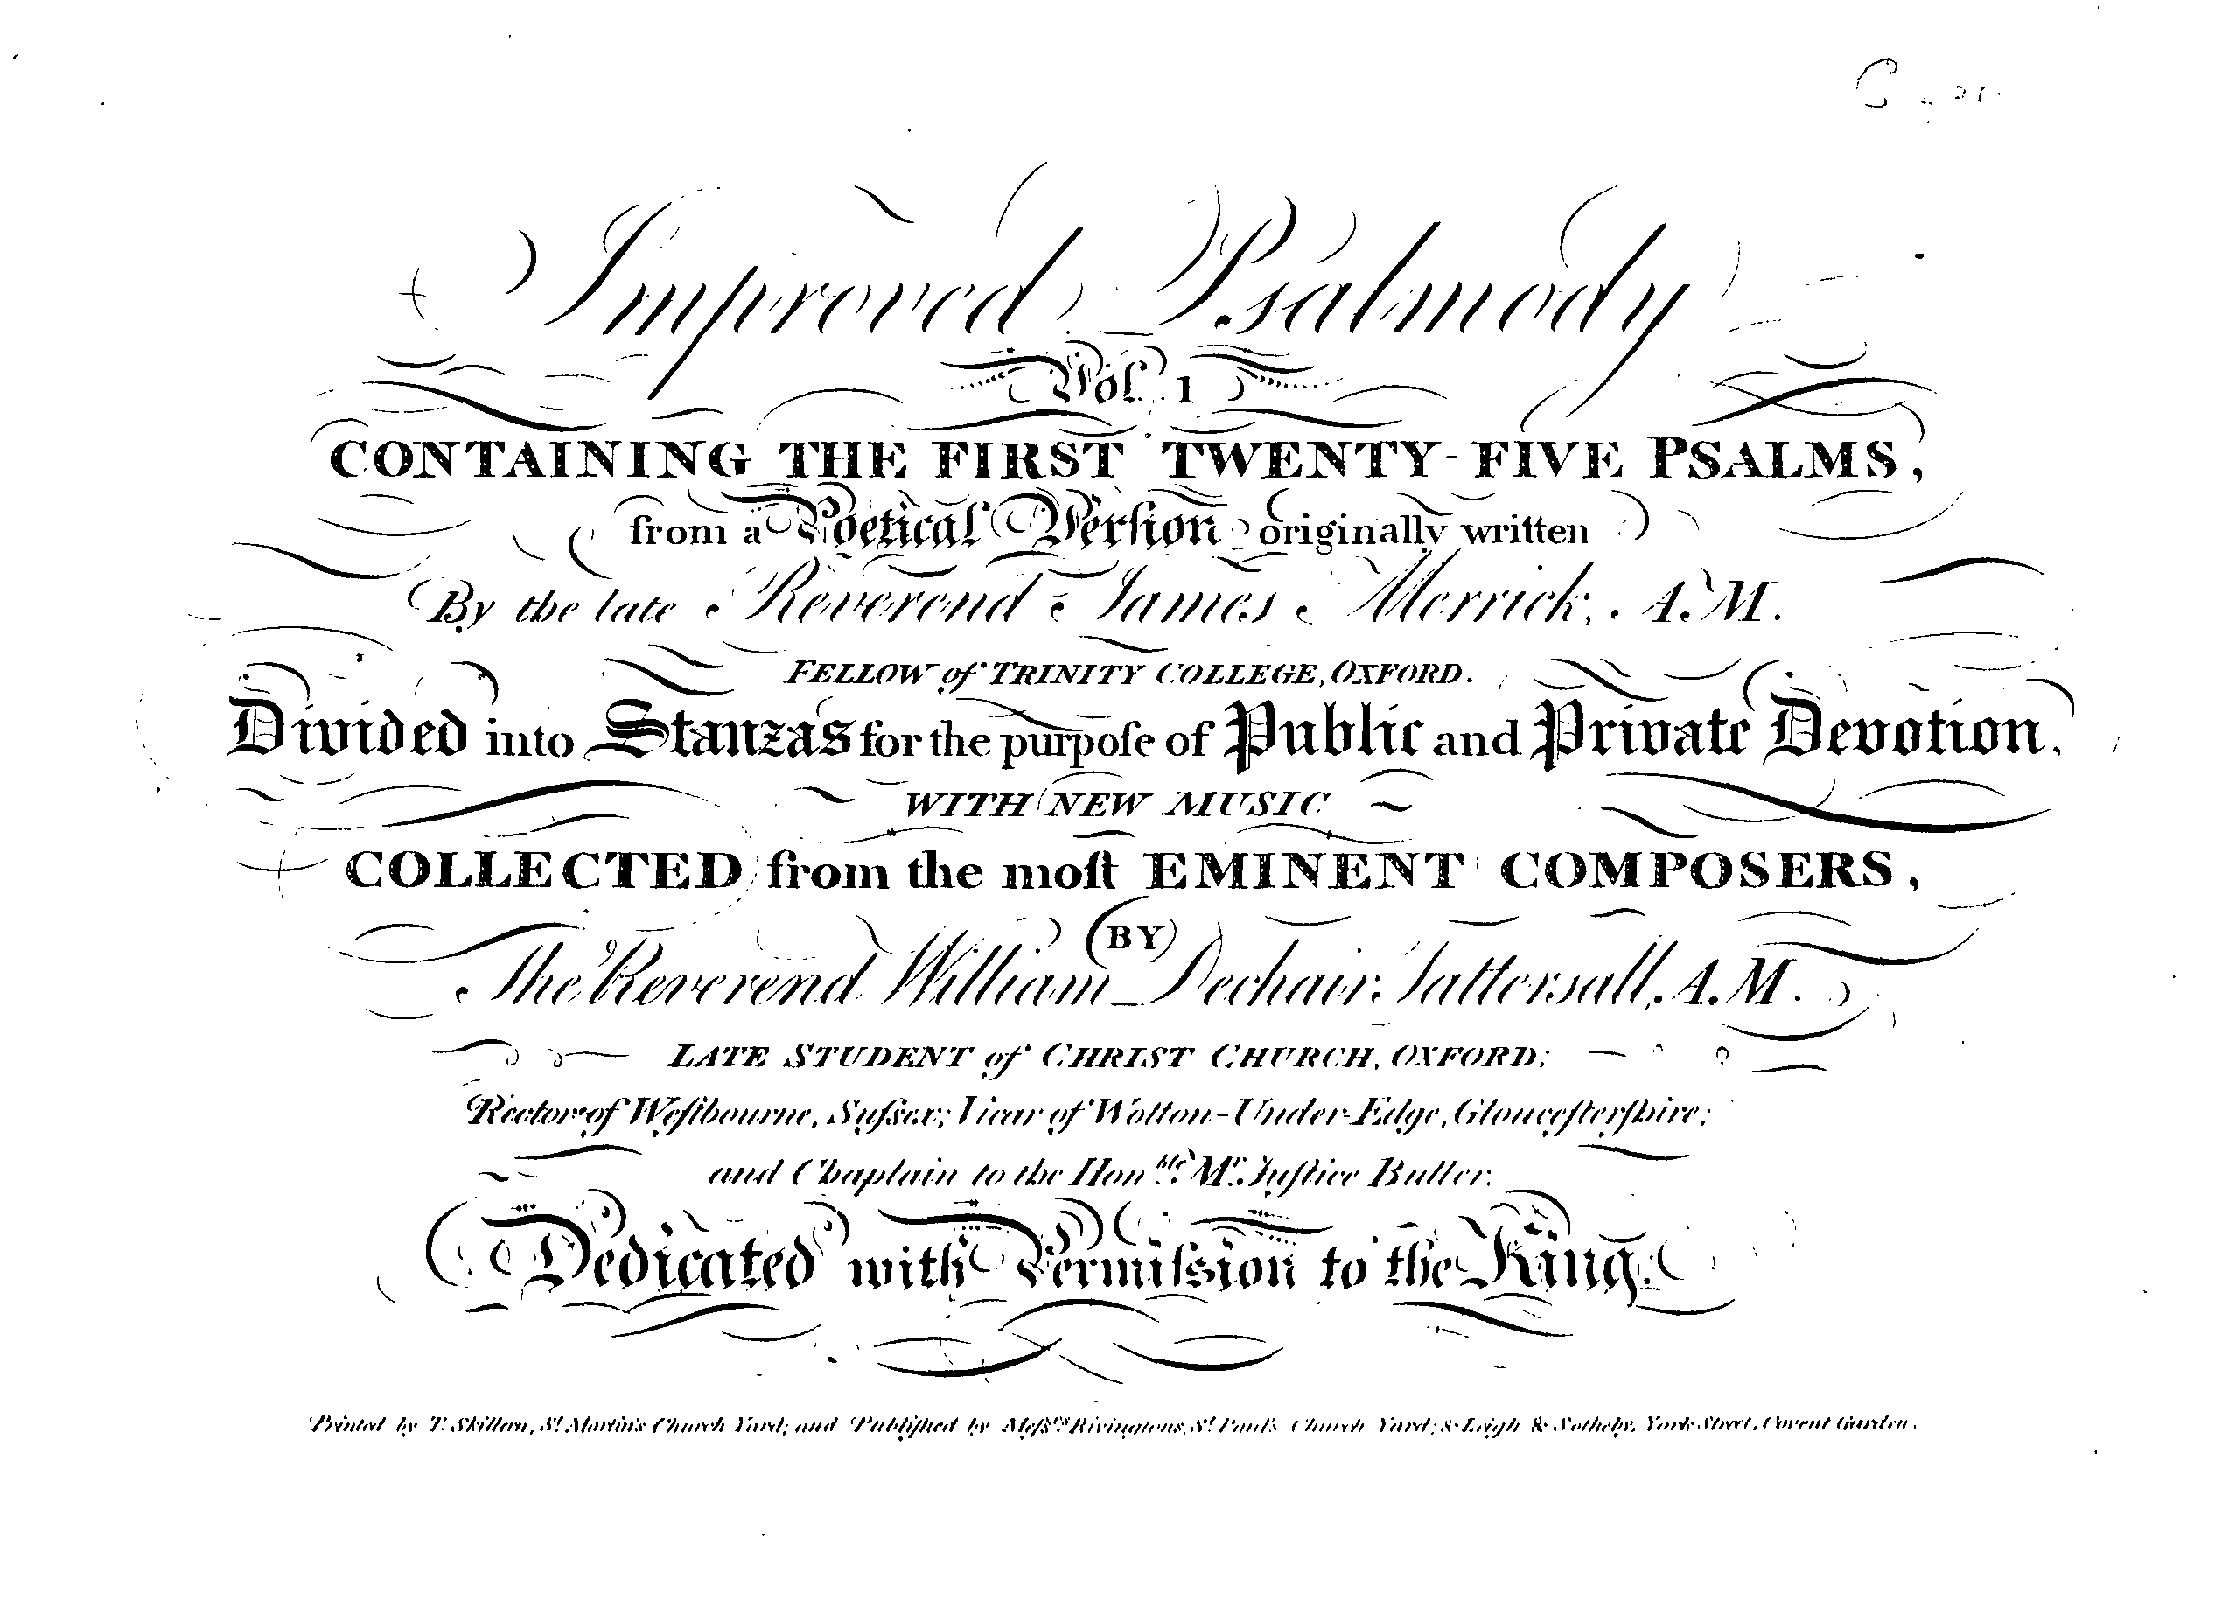 Improved Psalmody
Vol. 1
CONTAINING THE FIRST TWENTY-FIVE PSALMS,
from a Poetical Verſion originally written
By the late Reverend James Merrick, A.M.
FELLOW of TRINITY COLLEGE, OXFORD.
Divided into Stanzas for the purpoſe of Public and Private Devotion,
WITH NEW MUSIC
COLLECTED from the moſt EMINENT COMPOSERS,
BY
The Reverend William Dechair Tattersall, A.M.
LATE STUDENT of CHRIST CHURCH, OXFORD;
Rector of Weſtbourne, Suſsex; Vicar of Wotton-Under-Edge, Glouceſterſhire;
and Chaplain to the Honble. Mr. Juſtice Buller.
Dedicated with Permiſsion to the King.
Printed by T. Skillern, St. Martin's Church Yard; and Publiſhed by Meſsrs. Rivingtons, St. Paul's Church Yard; & Leigh & Sotheby, York Street, Covent Garden.